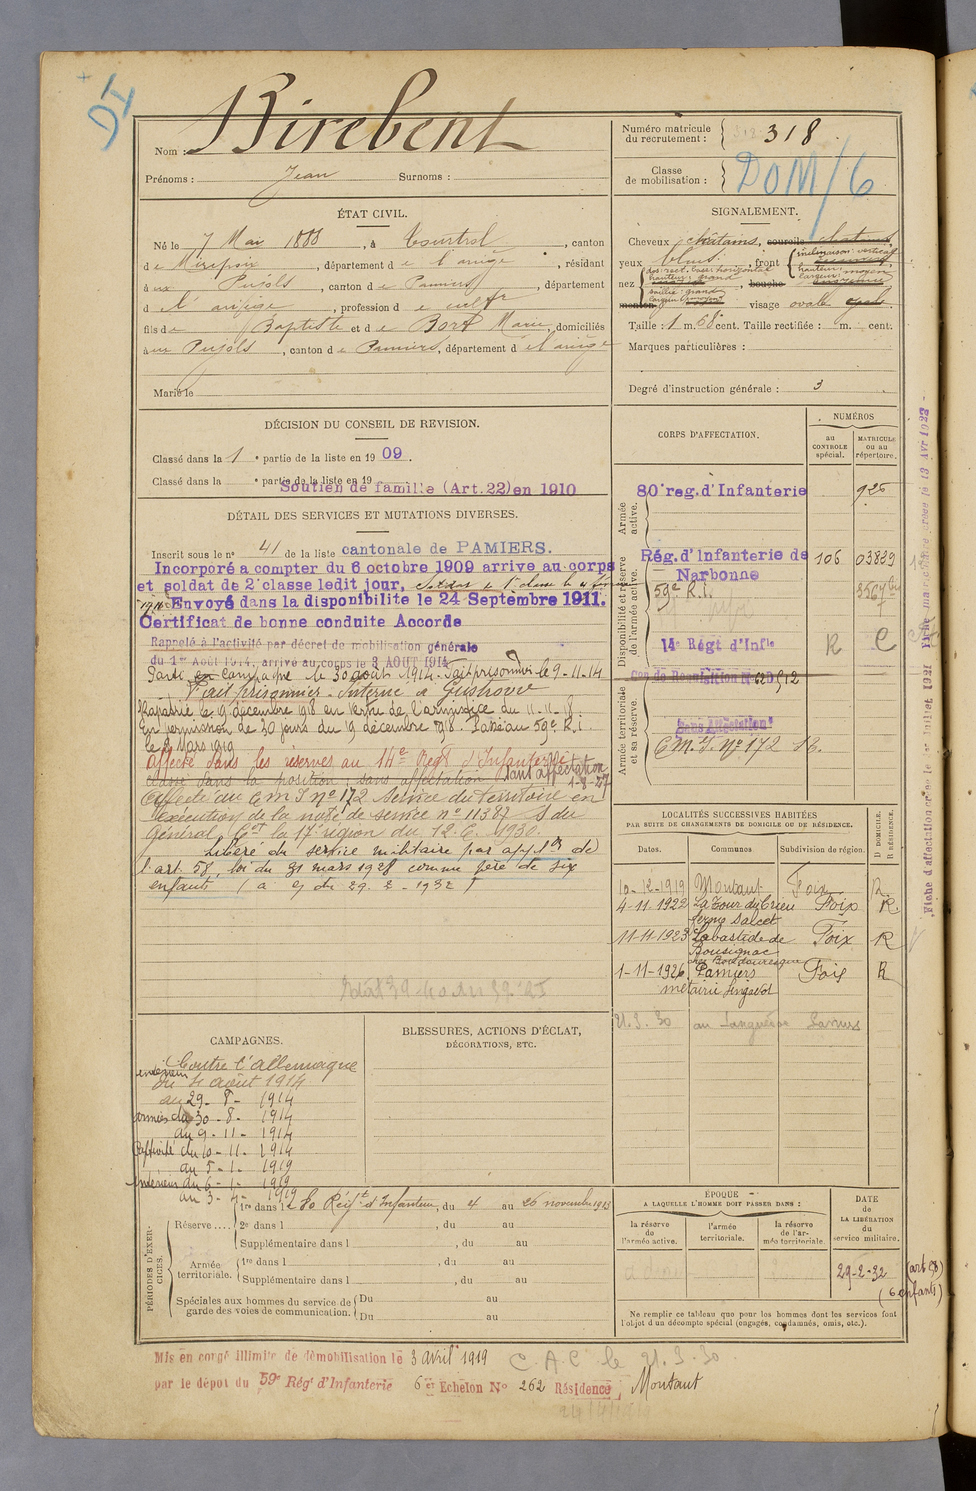 DI
Nom : Birebent
Prénoms : Jean Surnoms :
Numéro matricule du recrutement : 318
Classe de mobilisation : DOM/6
ÉTAT CIVIL.
Né le 7 Mai 1888, à Courtrol, canton
de Mirepoix, département de l'ariège, résidant
à Pujols, canton de Pamiers, département
d l'ariège, profession de cultr
fils de Baptiste et de Bort Marie, domiciliés
à Pujols, canton de Pamiers, département d l'ariège
Marié le
SIGNALEMENT.
Cheveux châtains, sourcils chatains,
yeux bleus, front inclinaison: vertical
hauteur: moyen
largeur: moyen
nez dos: rect. base: horizontal
hauteur: grand
saillie: grand
largeur: moyen
, bouche
menton visage ovale
Taille : 1 m. 68 cent. Taille rectifiée : m. cent.
Marques particulières :
Degré d'instruction générale : 3
DÉCISION DU CONSEIL DE REVISION.
Classé dans la 1e partie de la liste en 1909.
Classé dans la e partie de la liste en 19
Soutien de famille (Art. 22) en 1910
DÉTAIL DES SERVICES ET MUTATIONS DIVERSES.
Inscrit sous le no 41 de la liste cantonale de PAMIERS.
Incorporé a compter du 6 octobre 1909 arrive au corps
et soldat de 2e classe ledit jour,
Envoyé dans la disponibilite le 24 Septembre 1911.
Certificat de bonne conduite Accordé
Rappelé à l'activité par décret de mobilisation générale
du 1er Août 1914, arrivé au corps le 3 AOUT 1914
Parti en campagne le 30 août 1914. Fait prisonnier le 9-11-14
Fait prisonnier. Interné à
Rapatrié le 19 décembre 1918 en vertu de l'armistice du 11-11-18
En permission de 30 jours du 19 décembre 1918. Passé au 59e R.I.
le 2 Mars 1919
Affecté dans les réserves au 14e Régt d'Infanterie
classé dans la position : sans affectation
Sans affectation
1-8-27
Affecté au C.M.I no 172 Service du territoire en
exécution de la note de service no 11387 du
Général Ct la 17e région du 12.6.1930.
Libéré du service militaire par appl. de
l'art 58, loi du 31 mars 1928 comme père de six
enfants ( a du 29-2-1932 )
CORPS D'AFFECTATION.
NUMÉROS
au CONTROLE spécial.
MATRICULE ou au répertoire.
Armée active.
80e reg. d'Infanterie 926
Disponibilité et réserve de l'armée active.
Rég. d'Infanterie de Narbonne 106 03839
59e R.I. 3567 bis
14e Régt d'Infie R C
Armée territoriale et sa réserve.
Sans Affectation
C.M.I. No 172
Fiche d'affectation créée le Juillet 1921 Fiche matricule créée le 13 Avr 1922
LOCALITÉS SUCCESSIVES HABITÉES
PAR SUITE DE CHANGEMENTS DE DOMICILE OU DE RÉSIDENCE.
Dates. Communes Subdivision de région. D DOMICILE. R RÉSIDENCE.
10-12-1919 Montaut Foix R
4-11-1922 La Tour du Crieu Foix R
ferme Salcet
11-11-1923 Labastide de Foix R
Bousignac
1-11-1926 Pamiers Foix R
métairie
21.3.30
CAMPAGNES.
Contre l'allemagne
intérieur du 4 août 1914
au 29-8-1914
armées du 30-8-1914
au 9-11-1914
Captivité du 10-11-1914
au 5-1-1919
intérieur du 6-1-1919
au 3-4-1919
BLESSURES, ACTIONS D'ÉCLAT,
DÉCORATIONS, ETC.
PÉRIODES D'EXERCICES.
Réserve....
1re dans le 80 Régt d'Infanterie, du 4 au 26 novembre 1913
2e dans l , du au
Supplémentaire dans l , du au
Armée territoriale.
1re dans l , du au
Supplémentaire dans l , du au
Spéciales aux hommes du service de garde des voies de communication.
Du au
Du au
ÉPOQUE
A LAQUELLE L'HOMME DOIT PASSER DANS :
la réserve de l'armée active.
l'armée territoriale.
la réserve de l'armée territoriale.
DATE DE LA LIBÉRATION du service militaire.
29-2-32 (art 58)
(6 enfants)
Ne remplir ce tableau que pour les hommes dont les services font
l'objet d'un décompte spécial (engagés, condamnés, omis, etc.).
Mis en congé illimité de démobilisation le 3 avril 1919
C.A.C le 21.3.30
par le dépôt du 59e Régt d'Infanterie 6e Echelon No 262 Résidence Montaut